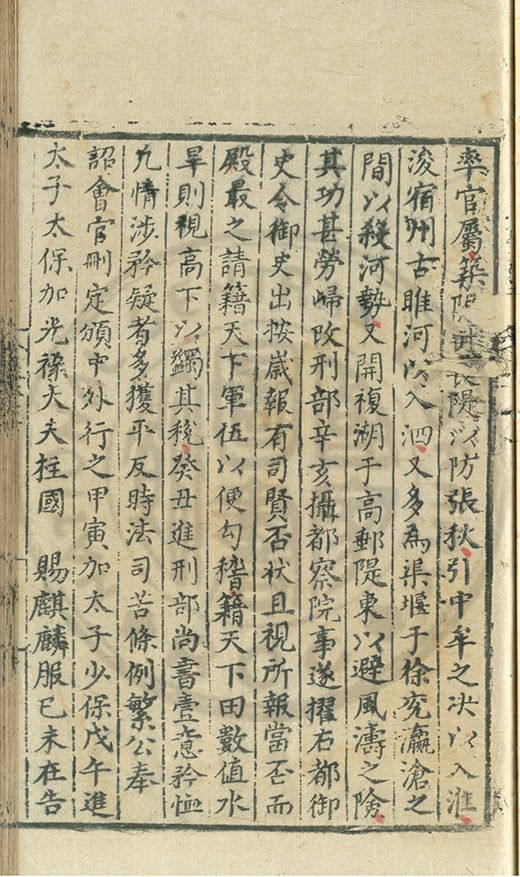 率官屬築陽長隄以防張秋引中牟之决以入淮
浚宿州古睢河以入泗又多為渠堰于徐兖瀛滄之
間以殺河勢又開複湖于高郵隄東以避風濤之險
其功甚勞歸改刑部辛亥攝都察院事遂擢右都御
史令御史出按歲報有司賢否狀且視所報當否而
殿最之請籍天下軍伍以便勾稽籍天下田數值水
旱則視高下以蠲其稅癸丑進刑部尚書壹意矜恤
凡情涉矜疑者多獲平反時法司苦條例繁公奉
詔會官刪定頒中外行之甲寅加太子少保戊午進
太子太保加光祿大夫柱國 賜麒麟服已未在告